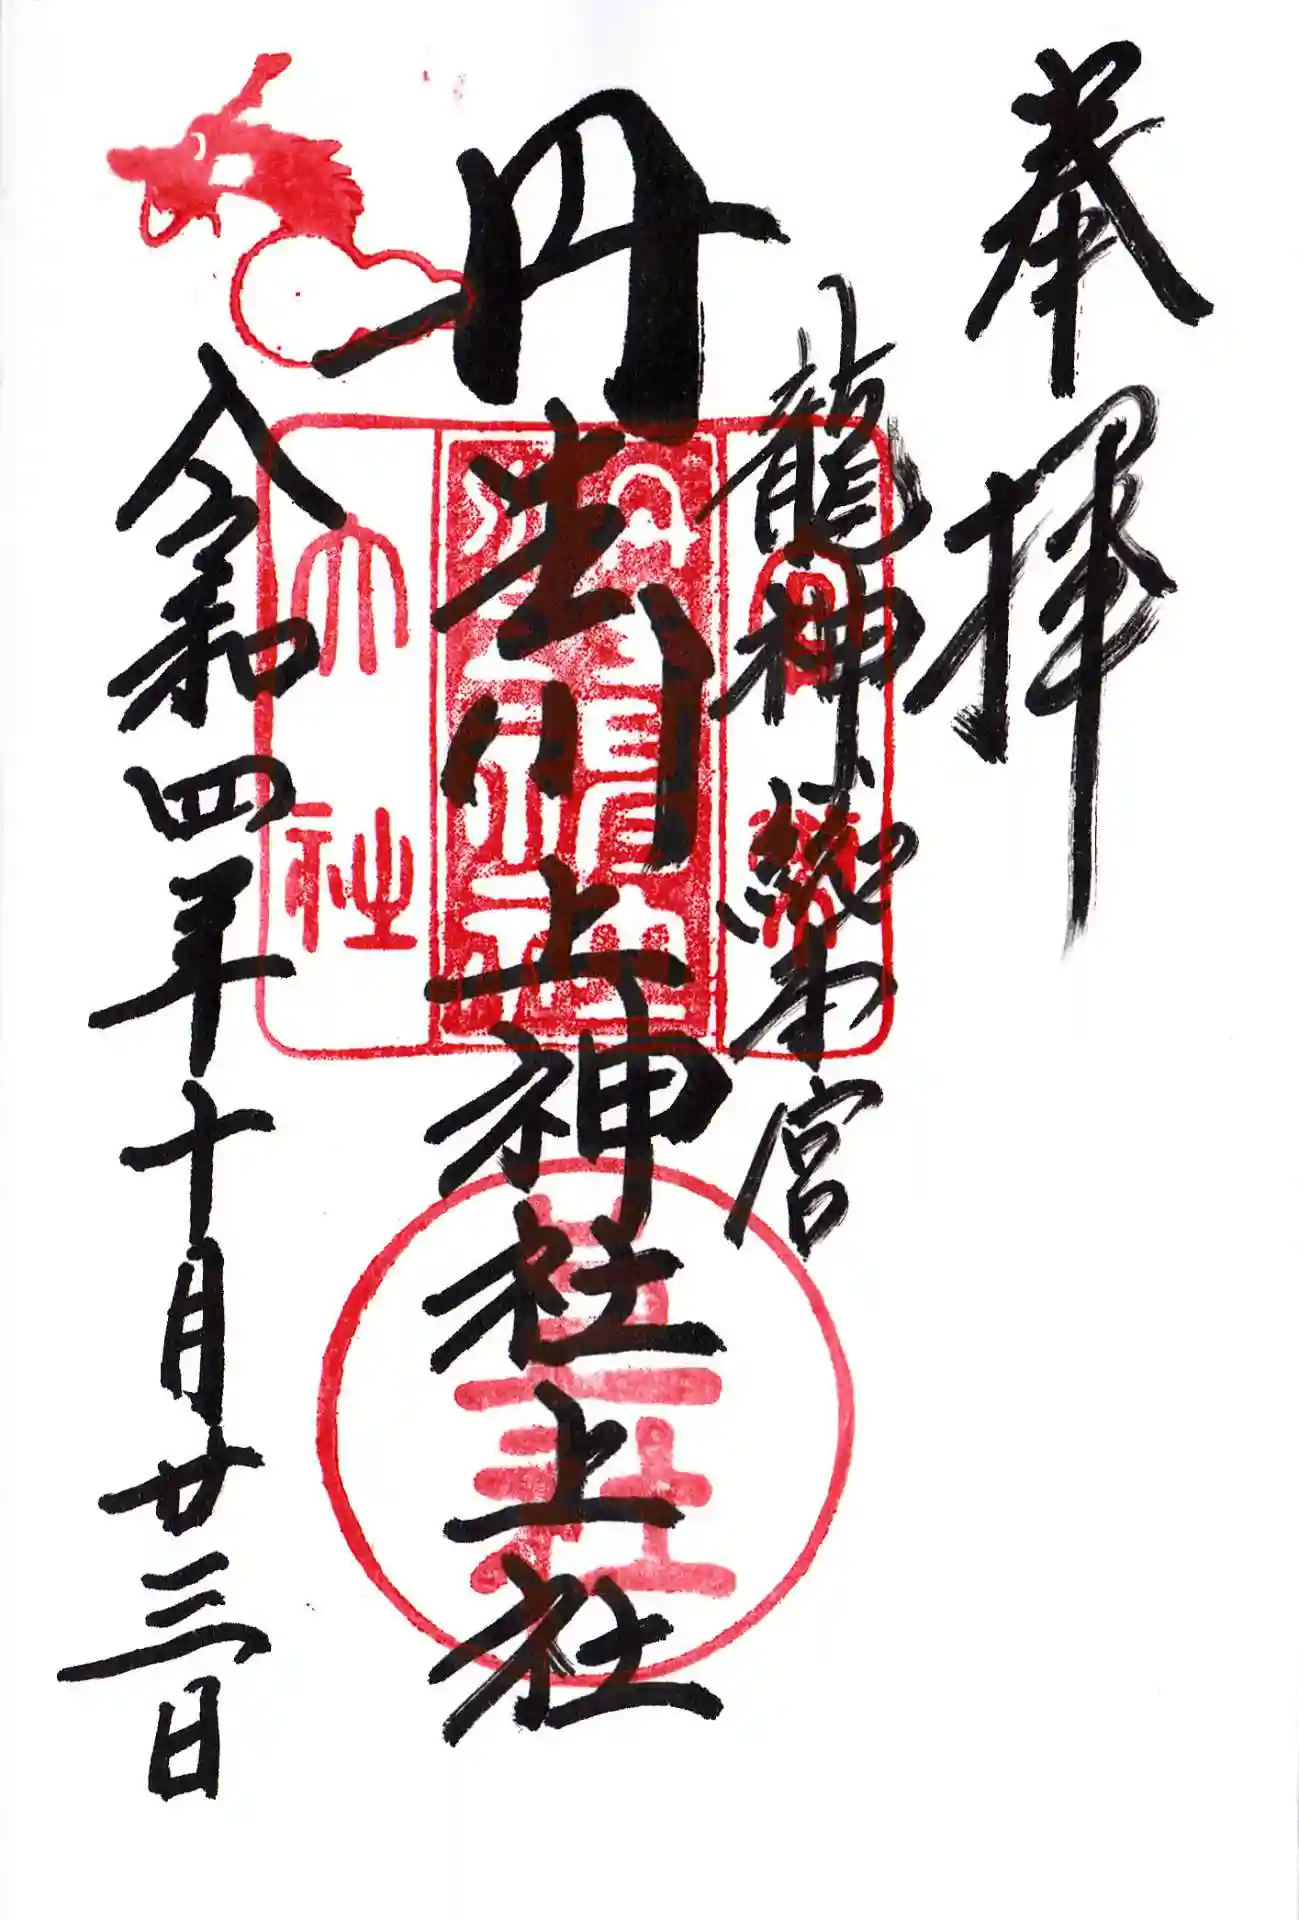 奉拝
龍神総本宮
丹生川上神社上社
令和四年十月廿三日
官幣
大社
上社